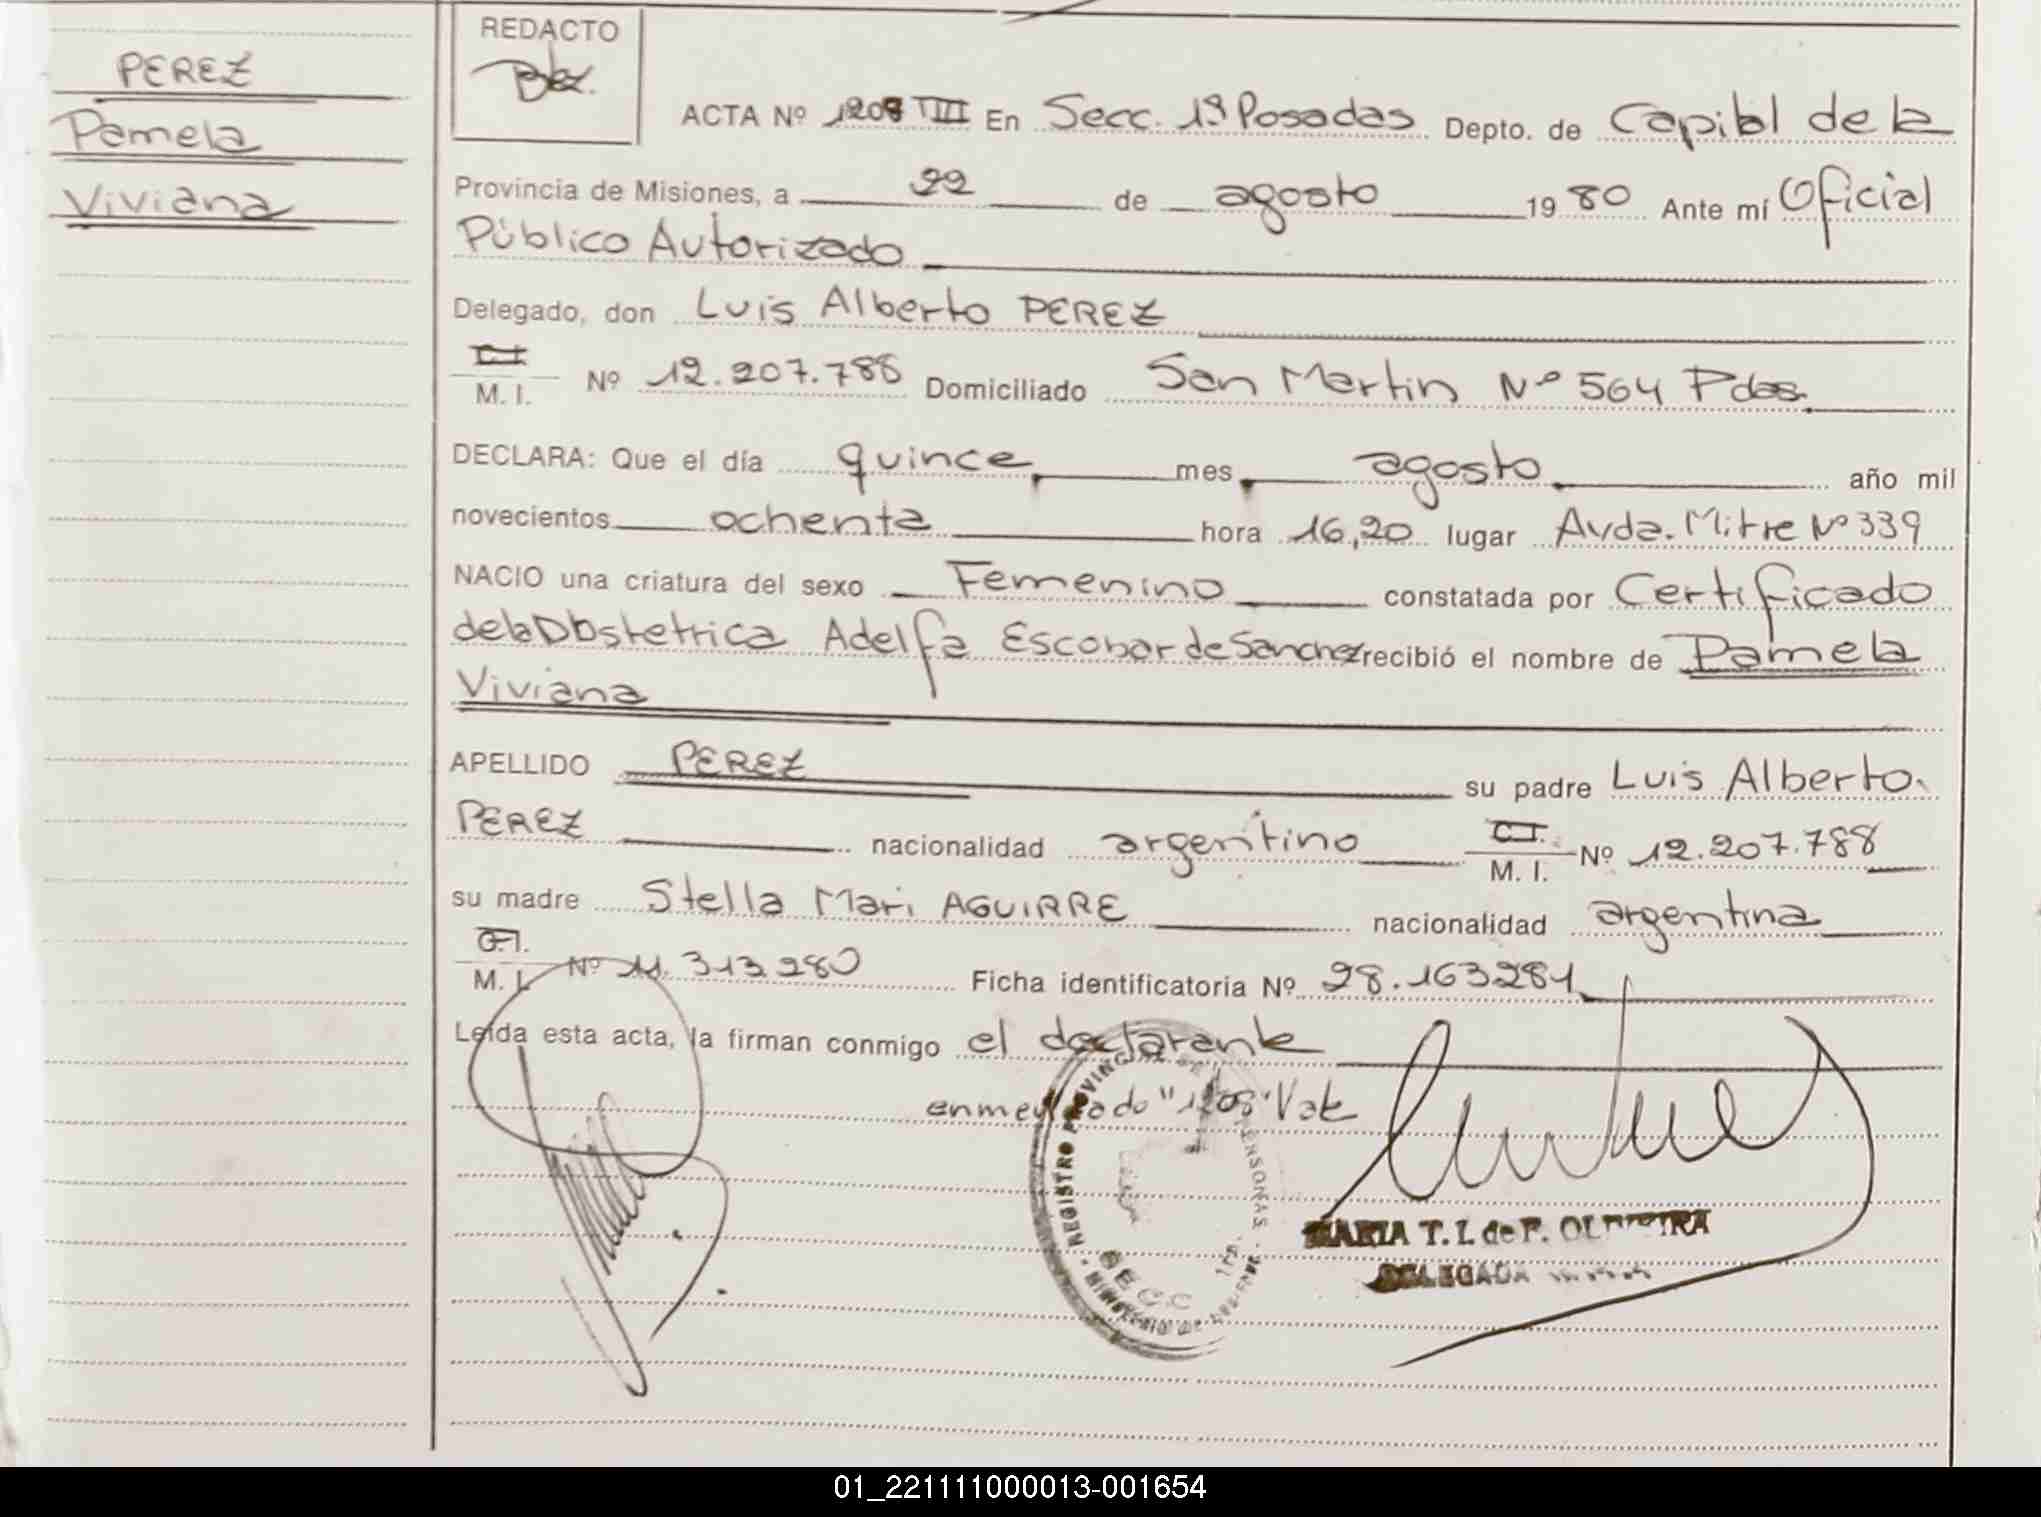 PEREZ
Pamela
Viviana
REDACTO
ACTA Nº 1208 TIII En Secc. 1ª Posadas Depto. de Capital de la
Provincia de Misiones, a 22 de agosto 1980 Ante mí Oficial
Público Autorizado
Delegado, don Luis Alberto PEREZ
C.I.
M. I. Nº 12.207.788 Domiciliado San Martin Nº 564 Pdas.
DECLARA: Que el día quince mes agosto año mil
novecientos ochenta hora 16,20 lugar Avda. Mitre Nº 339
NACIO una criatura del sexo Femenino constatada por Certificado
de la Obstetrica Adelfa Escobar de Sanchez recibió el nombre de Pamela
Viviana
APELLIDO PEREZ su padre Luis Alberto
PEREZ nacionalidad argentino C.I.
M. I. Nº 12.207.788
su madre Stella Mari AGUIRRE nacionalidad argentina
C.I.
M. I. Nº 11.313.280 Ficha identificatoria Nº 28.163281
Leída esta acta, la firman conmigo el declarante
enmendado "1208" Vale
REGISTRO PROVINCIAL DE LAS PERSONAS
SECC 1ra.
MARIA T. I. de F. OLIVEIRA
DELEGADA
01_221111000013-001654